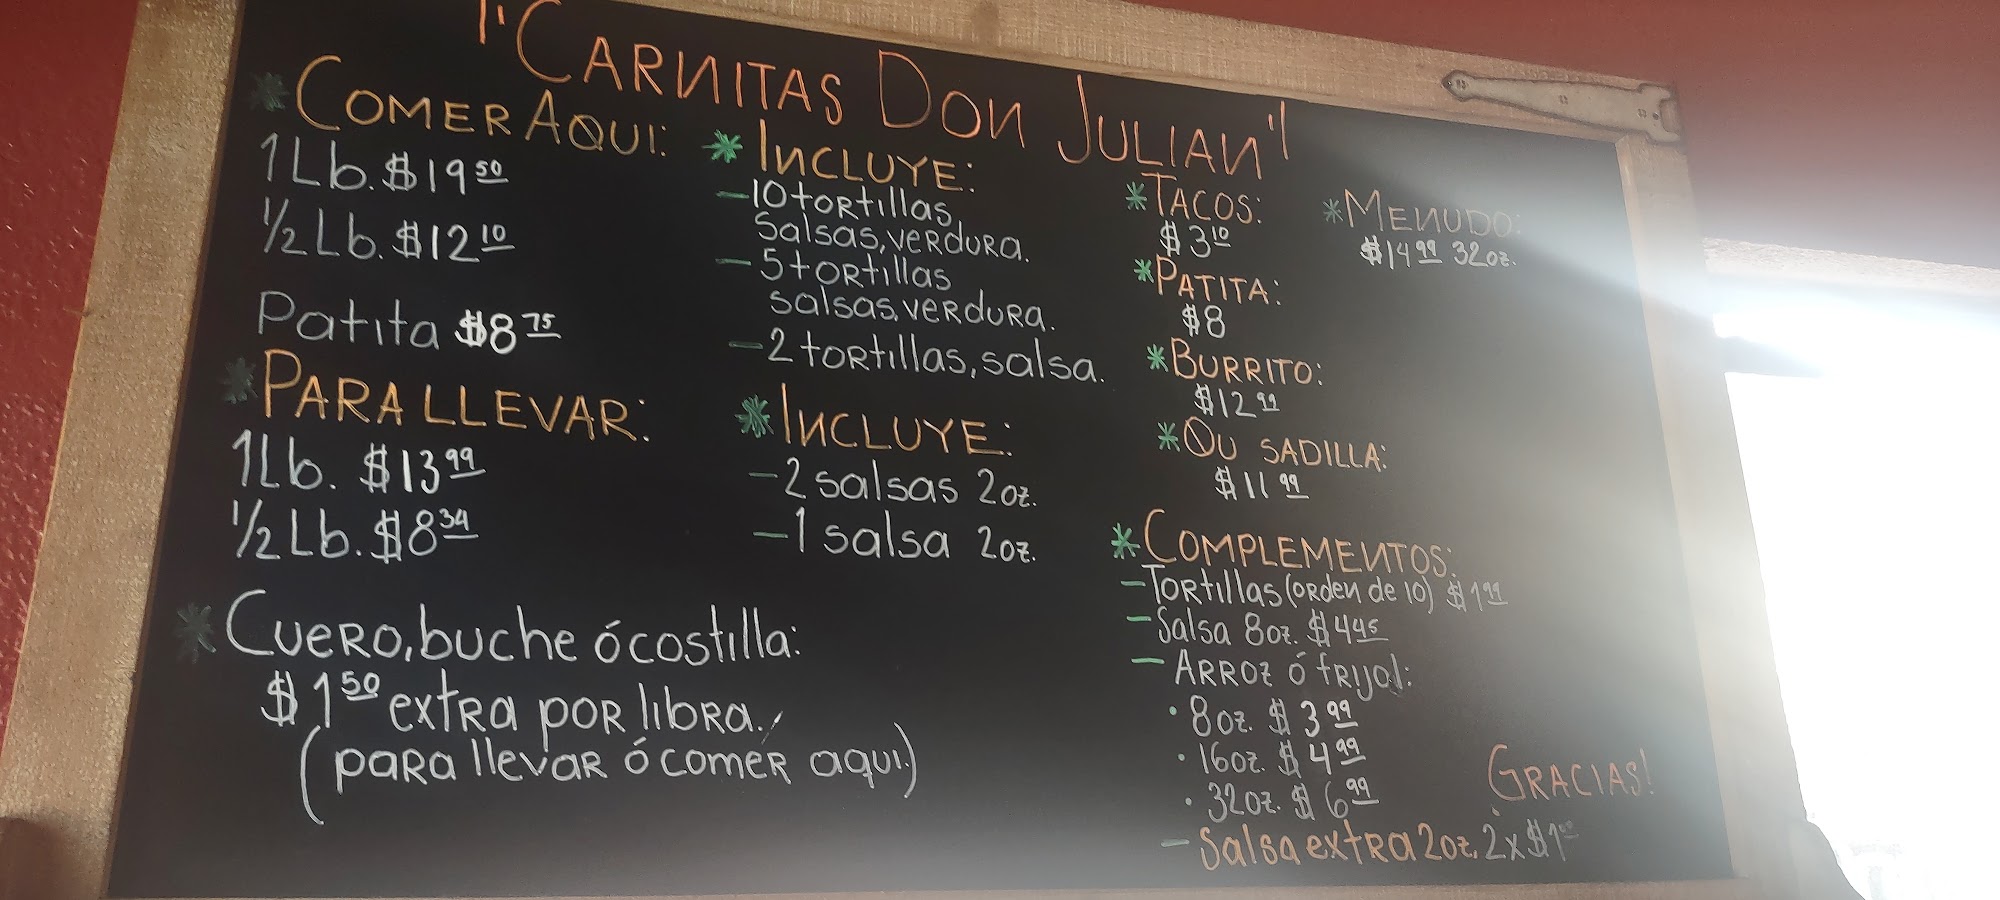 "CARNITAS DON JULIAN"
* COMER AQUI:
1 Lb. $19 50
½ Lb. $12 10
Patita $8 75
* INCLUYE:
- 10 tortillas,
salsas, verdura.
- 5 tortillas
salsas, verdura.
- 2 tortillas, salsa.
* PARA LLEVAR:
1 Lb. $13 99
½ Lb. $8 34
* INCLUYE:
- 2 salsas 2oz.
- 1 salsa 2oz.
* Cuero, buche ó costilla:
$1 50 extra por libra.
(para llevar ó comer aqui.)
* TACOS:
$3 10
* PATITA:
$8
* BURRITO:
$12 99
* QU SADILLA:
$11 99
* MENUDO:
$14 99 32oz.
* COMPLEMENTOS:
- Tortillas (orden de 10) $1 99
- Salsa 8oz. $4 45
- Arroz ó frijol:
• 8oz. $3 99
• 16oz. $4 99
• 32oz. $6 99
- Salsa extra 2oz. 2x $1
GRACIAS!